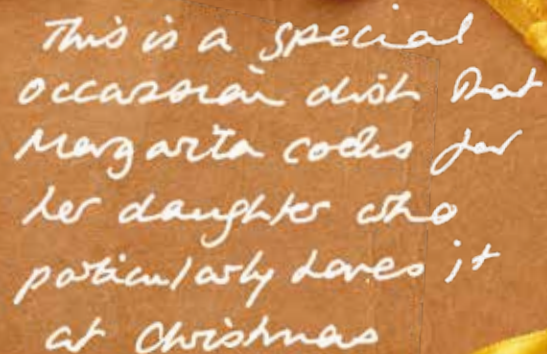 This is a special
occassion dish that
Margarita cooks for
her daughter who
paticularly loves it
at Christmas